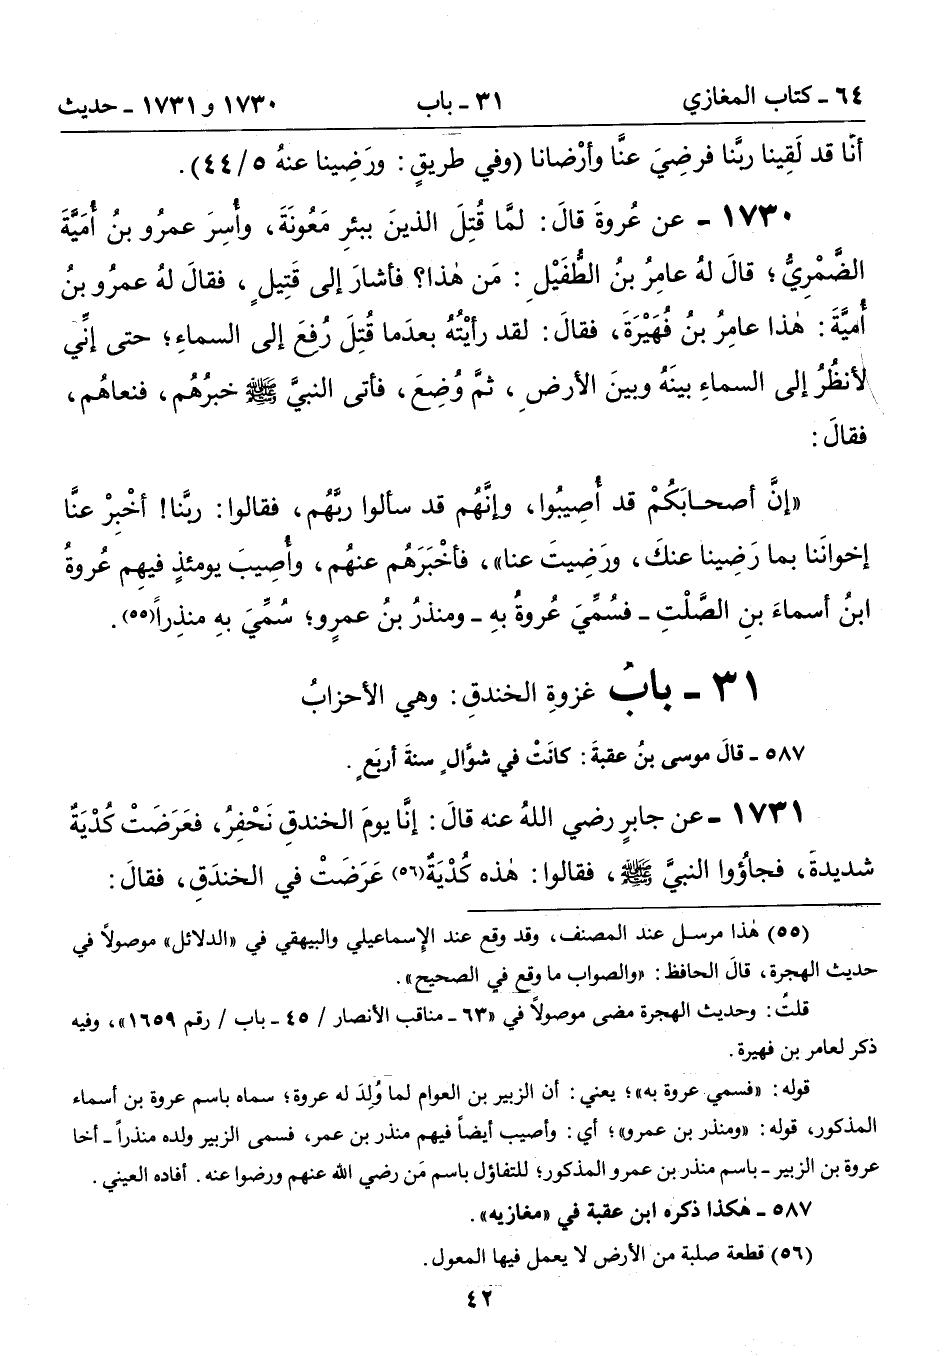 ٦٤ ـ كتاب المغازي ٣١ ـ باب ١٧٣٠ و ١٧٣١ ـ حديث
أنّا قد لَقِينا ربَّنا فرضِيَ عنَّا وأرْضانا (وفي طريقٍ: ورَضِينا عنهُ ٥/ ٤٤).
١٧٣٠ ـ عن عُروةَ قالَ: لمَّا قُتِلَ الذينَ ببئرِ مَعُونَةَ، وأُسِرَ عمرُو بنُ أُمَيَّةَ
الضَّمْرِيُّ؛ قالَ لهُ عامِرُ بنُ الطُّفَيْلِ: مَن هٰذا؟ فأشارَ إلى قَتِيلٍ، فقالَ لهُ عمرُو بنُ
أُميَّةَ: هٰذا عامِرُ بنُ فُهَيْرَةَ، فقالَ: لقد رأيْتُهُ بعدَما قُتِلَ رُفِعَ إلى السماءِ؛ حتى إنِّي
لَأنظُرُ إلى السماءِ بينَهُ وبينَ الأرضِ، ثمَّ وُضِعَ، فأتى النبيَّ ﷺ خبرُهُم، فنعاهُم،
فقالَ:
«إنَّ أصحـابَكُمْ قد أُصِيبُوا، وإنَّهُم قد سألوا ربَّهُم، فقالوا: ربَّنا! أخْبِرْ عنَّا
إخوانَنا بما رَضِينا عنكَ، ورَضِيتَ عنا»، فأخْبَرَهُم عنهُم، وأُصِيبَ يومئذٍ فيهِم عُروةُ
ابنُ أسماءَ بنِ الصَّلْتِ ـ فسُمِّيَ عُروةُ بهِ ـ ومنذرُ بنُ عمرٍو؛ سُمِّيَ بهِ منذِراً(٥٥).
٣١ ـ بابُ غزوةِ الخندقِ: وهي الأحزابُ
٥٨٧ ـ قالَ موسى بنُ عقبةَ: كانَتْ في شوَّالٍ سنةَ أربَعٍ.
١٧٣١ ـ عن جابرٍ رضي اللهُ عنه قالَ: إنَّا يومَ الخندقِ نَحْفِرُ، فعَرَضَتْ كُدْيَةٌ
شديدةَ، فجاؤوا النبيَّ ﷺ، فقالوا: هٰذه كُدْيَةٌ(٥٦) عَرَضَتْ في الخندَقِ، فقالَ:
(٥٥) هٰذا مرسل عند المصنف، وقد وقع عند الإسماعيلي والبيهقي في «الدلائل» موصولاً في
حديث الهجرة، قالَ الحافظ: «والصواب ما وقع في الصحيح».
قلتُ: وحديث الهجرة مضى موصولاً في «٦٣ ـ مناقب الأنصار / ٤٥ ـ باب / رقم ١٦٥٩»، وفيه
ذكر لعامر بن فهيرة.
قوله: «فسمي عروة به»؛ يعني: أن الزبير بن العوام لما وُلِدَ له عروة؛ سماه باسم عروة بن أسماء
المذكور، قوله: «ومنذر بن عمرو»؛ أي: وأصيب أيضاً فيهم منذر بن عمر، فسمى الزبير ولده منذراً ـ أخا
عروة بن الزبير ـ باسم منذر بن عمرو المذكور؛ للتفاؤل باسم مَن رضي الله عنهم ورضوا عنه. أفاده العيني.
٥٨٧ ـ هٰكذا ذكره ابن عقبة في «مغازيه».
(٥٦) قطعة صلبة من الأرض لا يعمل فيها المعول.
٤٢